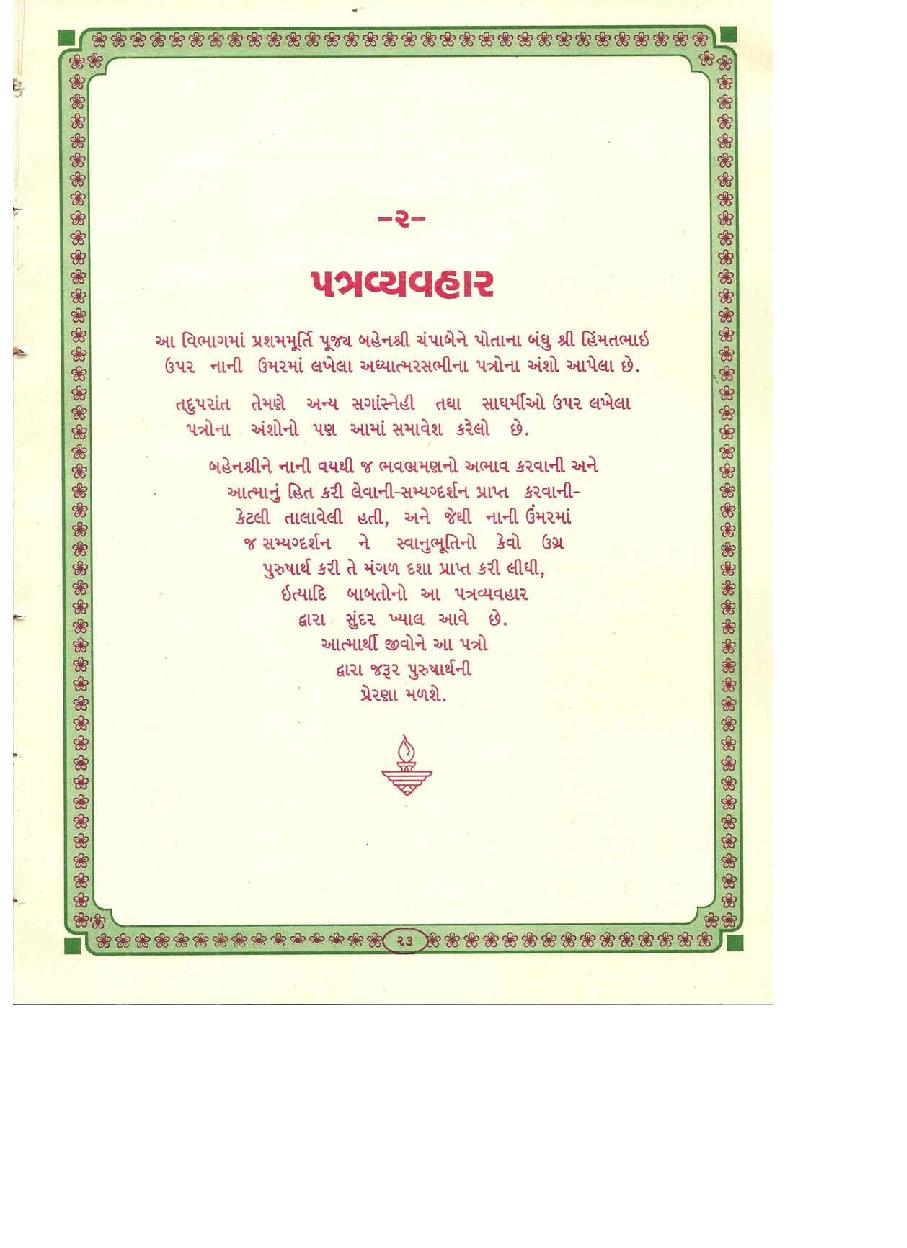 -૨-
પત્રવ્યવહાર
આ વિભાગમાં પ્રશમમૂર્તિ પૂજ્ય બહેનશ્રી ચંપાબેને પોતાના બંધુ શ્રી હિંમતભાઇ
ઉપર નાની ઉમરમાં લખેલા અધ્યાત્મરસભીના પત્રોના અંશો આપેલા છે.
તદુપરાંત તેમણે અન્ય સગાંસ્નેહી તથા સાધર્મીઓ ઉપર લખેલા
પત્રોના અંશોનો પણ આમાં સમાવેશ કરેલો છે.
બહેનશ્રીને નાની વયથી જ ભવભ્રમણનો અભાવ કરવાની અને
આત્માનું હિત કરી લેવાની-સમ્યગ્દર્શન પ્રાપ્ત કરવાની-
કેટલી તાલાવેલી હતી, અને જેથી નાની ઉંમરમાં
જ સમ્યગ્દર્શન ને સ્વાનુભૂતિનો કેવો ઉગ્ર
પુરુષાર્થ કરી તે મંગળ દશા પ્રાપ્ત કરી લીધી,
ઇત્યાદિ બાબતોનો આ પત્રવ્યવહાર
દ્વારા સુંદર ખ્યાલ આવે છે.
આત્માર્થી જીવોને આ પત્રો
દ્વારા જરૂર પુરુષાર્થની
પ્રેરણા મળશે.
૨૩